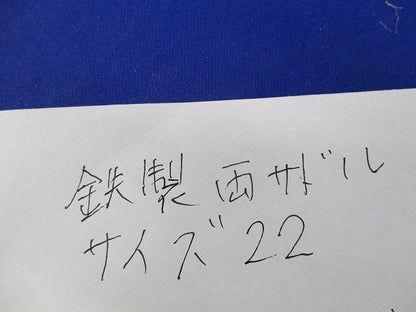 鉄製両サドル
サイズ22